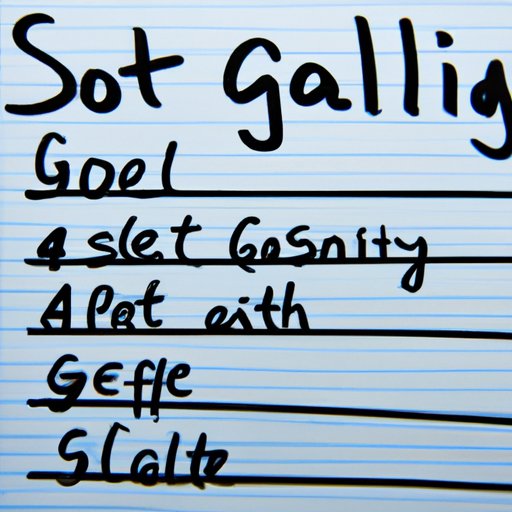 Sot Gallig
Goel
4 slet Gosnity
A Pet eith
Geffe
Slolte